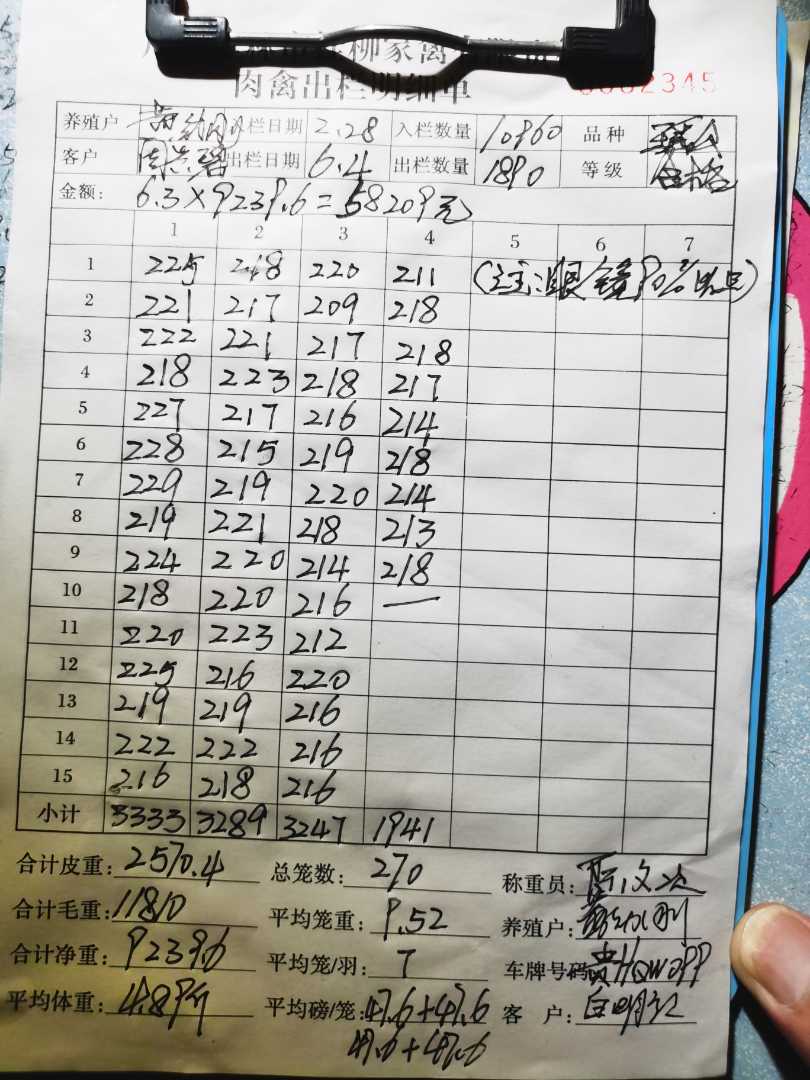 柳家禽
肉禽出栏明细单 0002345
养殖户 栏日期 2.28 入栏数量 10960 品种
客户 出栏日期 6.4 出栏数量 1890 等级 合格
金额: 6.3×9239.6=58209元
1 2 3 4 5 6 7
1 225 218 220 211 (主:眼镜90%
2 221 217 209 218
3 222 221 217 218
4 218 223 218 217
5 227 217 216 214
6 228 215 219 218
7 229 219 220 214
8 219 221 218 213
9 224 220 214 218
10 218 220 216 —
11 220 223 212
12 225 216 220
13 219 219 216
14 222 222 216
15 216 218 216
小计 3333 3289 3247 1941
合计皮重: 2570.4 总笼数: 270 称重员:
合计毛重: 11810 平均笼重: 9.52 养殖户:
合计净重: 9239.6 平均笼/羽: 7 车牌号码:
平均体重: 4.89斤 平均磅/笼: 47.6+47.6 客 户:
47.6+47.6